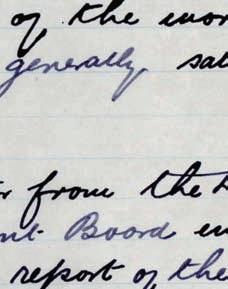 of the wor
generally sat
r from the
nt Board in
report of the